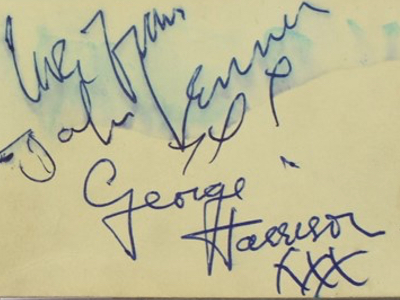 Love from
John Lennon
xxx
George
Harrison
xxx